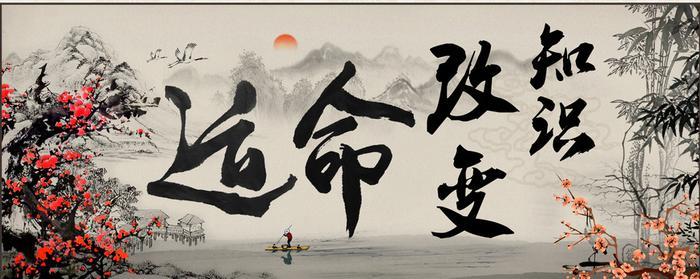 知识
改变
命运